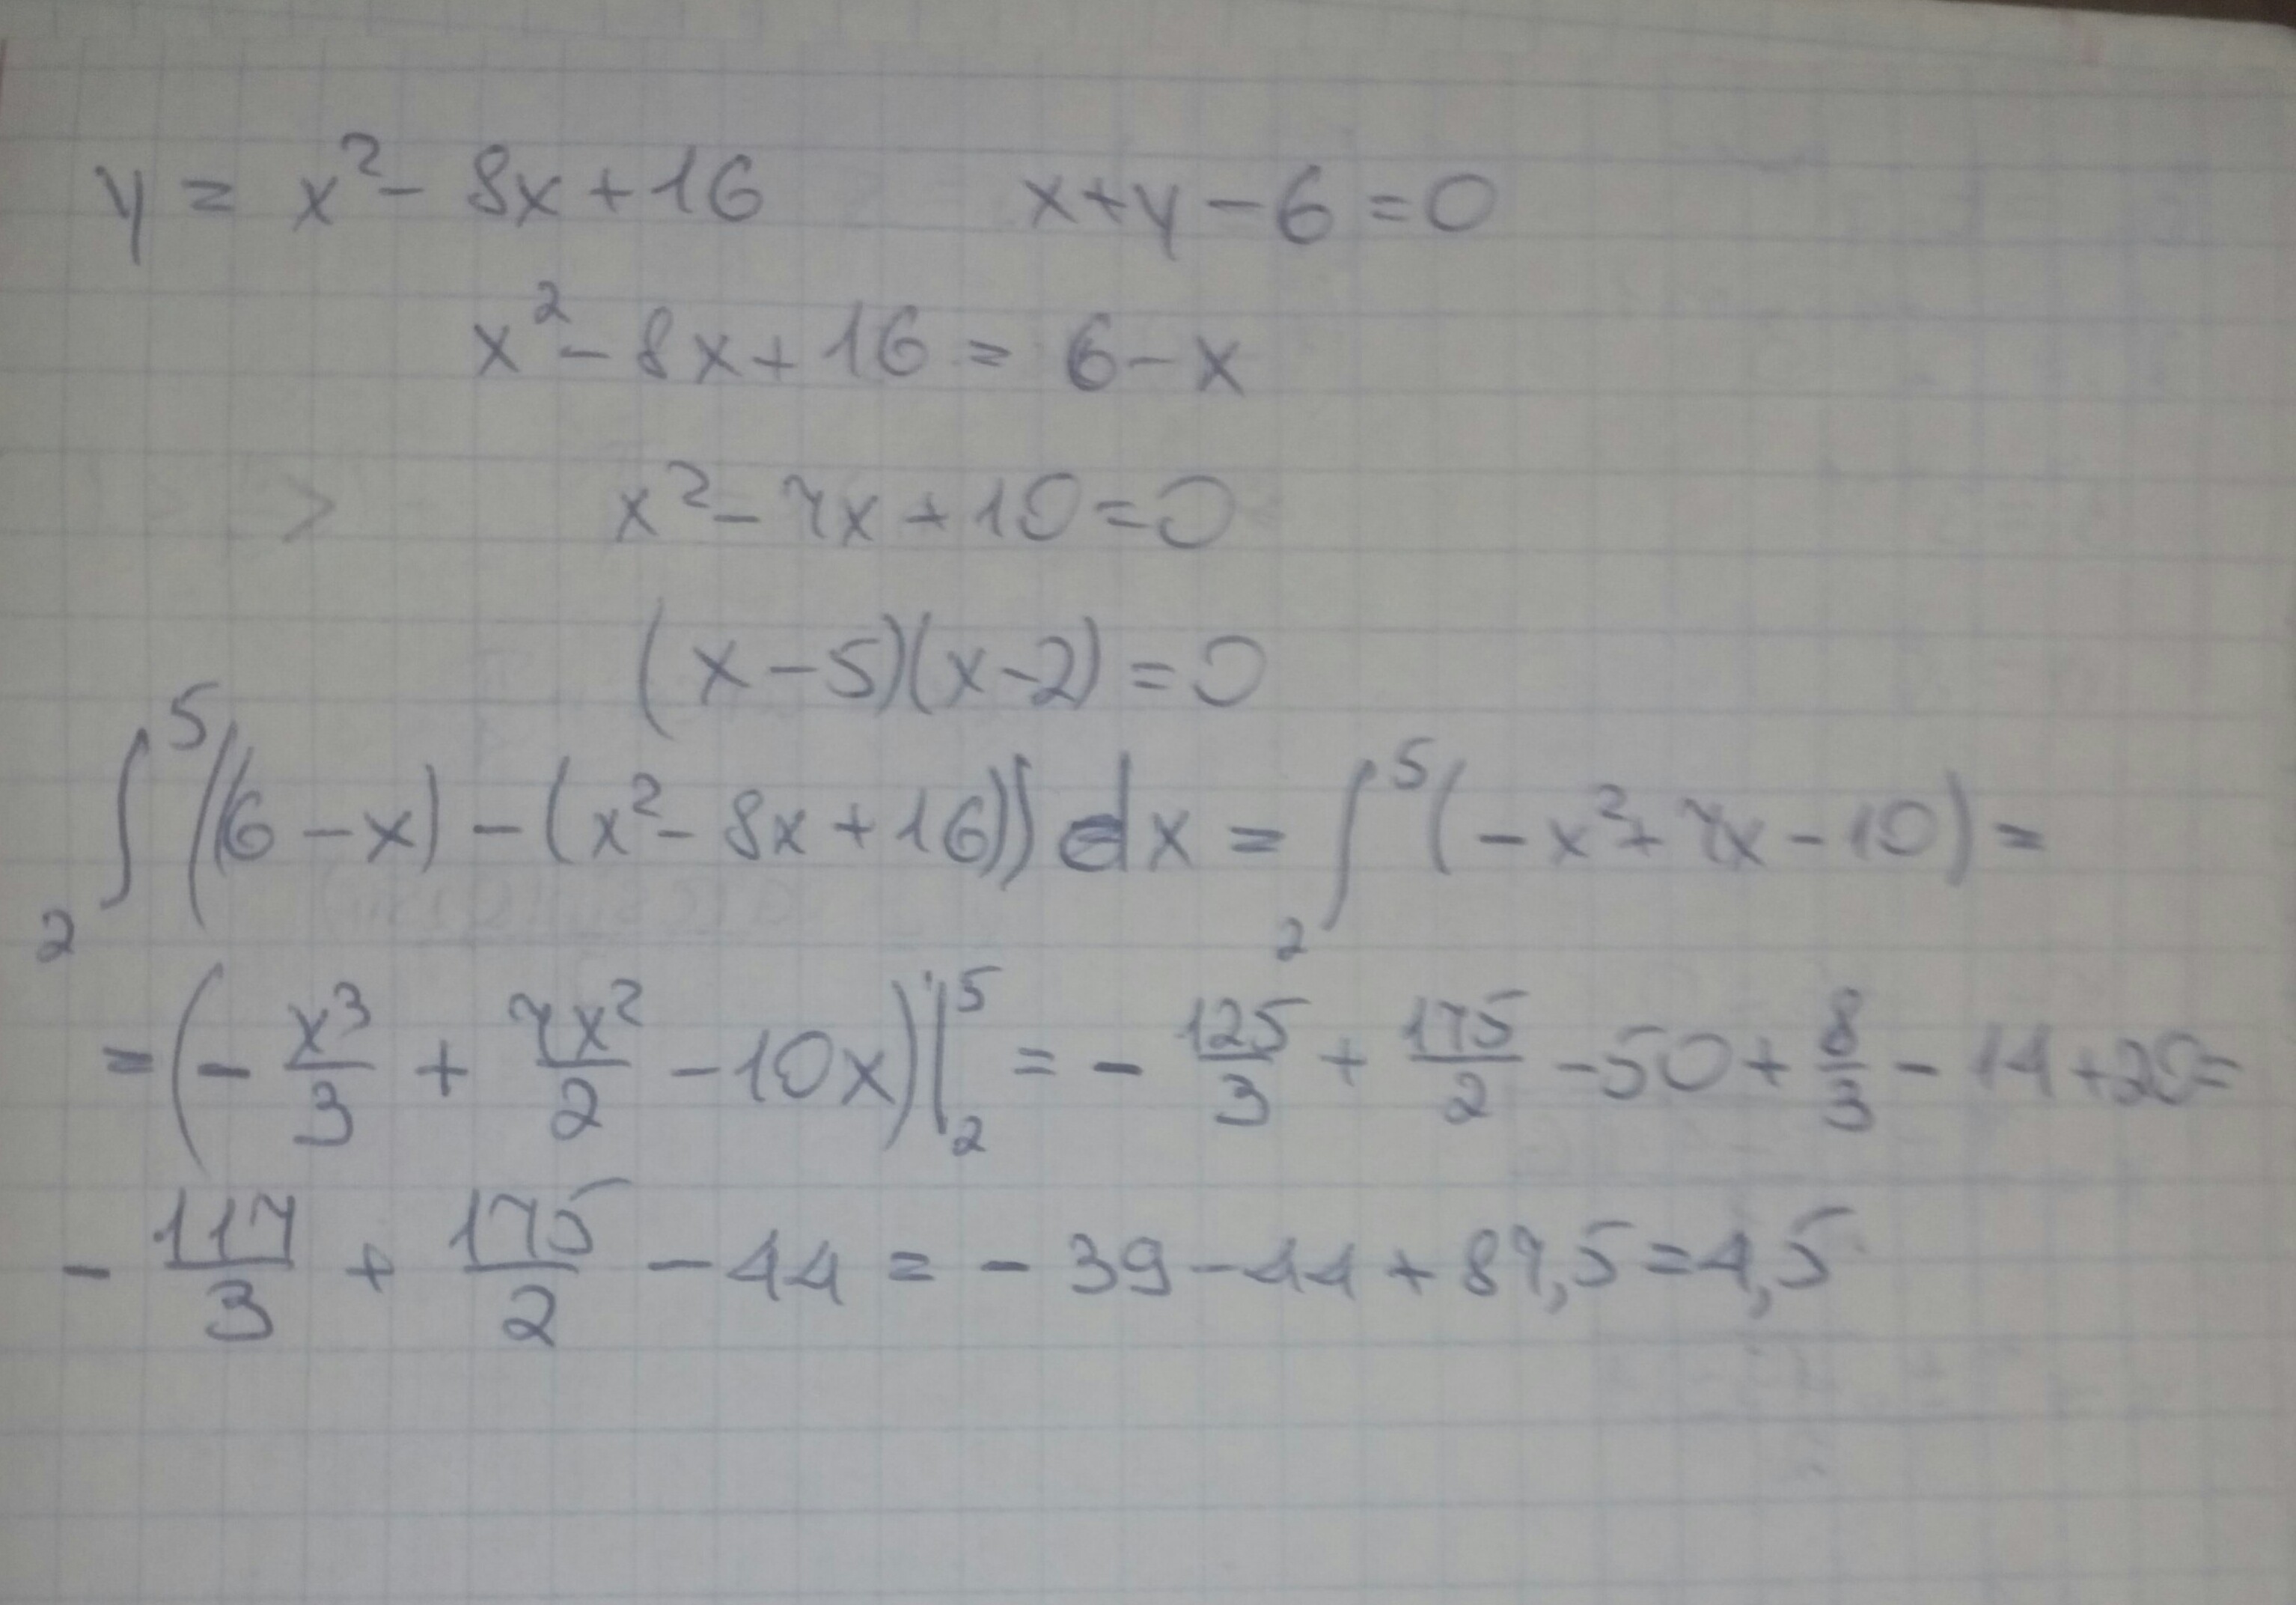 y = x² - 8x + 16 x + y - 6 = 0
x² - 8x + 16 = 6 - x
> x² - 7x + 10 = 0
(x - 5)(x - 2) = 0
∫₂⁵ ((6 - x) - (x² - 8x + 16)) dx = ∫₂⁵ (-x² + 7x - 10) =
= (- x³/3 + 7x²/2 - 10x) |₂⁵ = - 125/3 + 175/2 - 50 + 8/3 - 14 + 20 =
- 117/3 + 175/2 - 44 = - 39 - 44 + 87,5 = 4,5